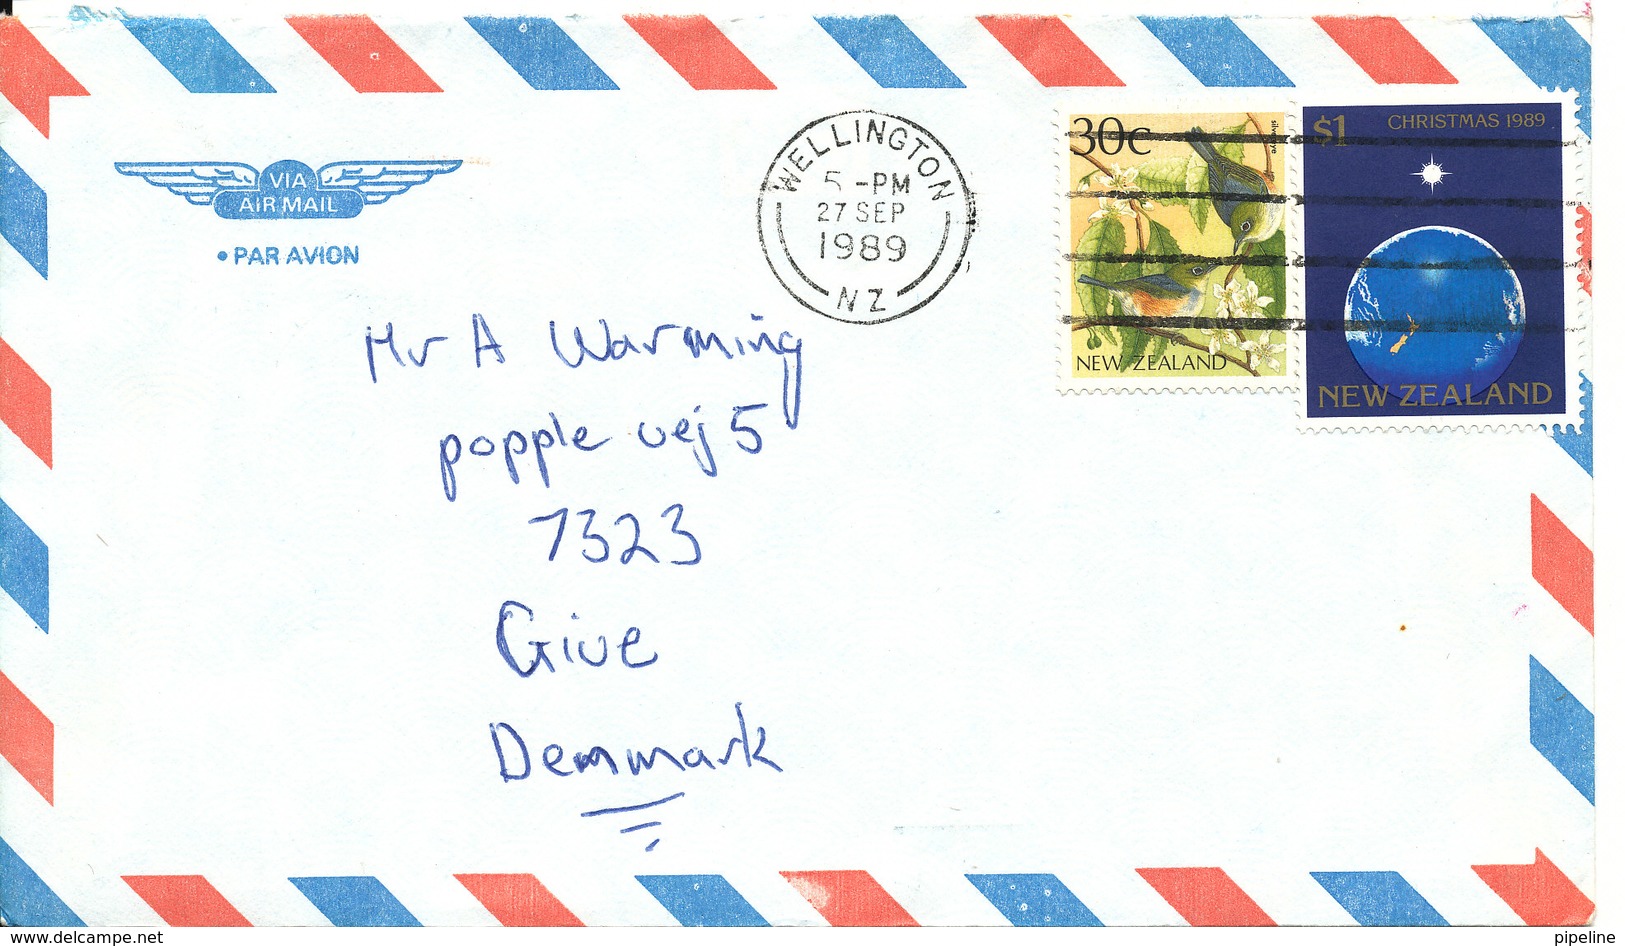 VIA
AIR MAIL
• PAR AVION
WELLINGTON
5 -PM
27 SEP
1989
NZ
30c
silvereye
NEW ZEALAND
$1 CHRISTMAS 1989
NEW ZEALAND
Mr A Warming
popple vej 5
7323
Give
Demmark
www.delcampe.net
pipeline